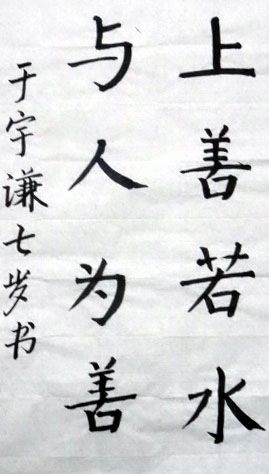 上善若水
与人为善
于宇谦七岁书